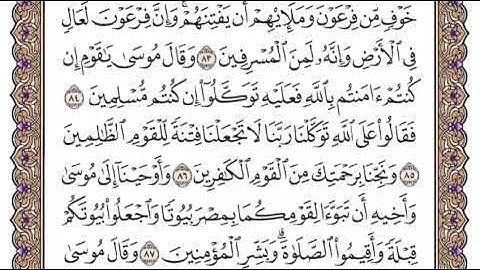 خَوۡفٖ مِّن فِرۡعَوۡنَ وَمَلَإِيْهِمۡ أَن يَفۡتِنَهُمۡۚ وَإِنَّ فِرۡعَوۡنَ لَعَالٖ
فِي ٱلۡأَرۡضِ وَإِنَّهُۥ لَمِنَ ٱلۡمُسۡرِفِينَ ٨٣ وَقَالَ مُوسَىٰ يَٰقَوۡمِ إِن
كُنتُمۡ ءَامَنتُم بِٱللَّهِ فَعَلَيۡهِ تَوَكَّلُوٓاْ إِن كُنتُم مُّسۡلِمِينَ ٨٤
فَقَالُواْ عَلَى ٱللَّهِ تَوَكَّلۡنَا رَبَّنَا لَا تَجۡعَلۡنَا فِتۡنَةٗ لِّلۡقَوۡمِ ٱلظَّٰلِمِينَ
٨٥ وَنَجِّنَا بِرَحۡمَتِكَ مِنَ ٱلۡقَوۡمِ ٱلۡكَٰفِرِينَ ٨٦ وَأَوۡحَيۡنَآ إِلَىٰ مُوسَىٰ
وَأَخِيهِ أَن تَبَوَّءَا لِقَوۡمِكُمَا بِمِصۡرَ بُيُوتٗا وَٱجۡعَلُواْ بُيُوتَكُمۡ
قِبۡلَةٗ وَأَقِيمُواْ ٱلصَّلَوٰةَۗ وَبَشِّرِ ٱلۡمُؤۡمِنِينَ ٨٧ وَقَالَ مُوسَىٰ